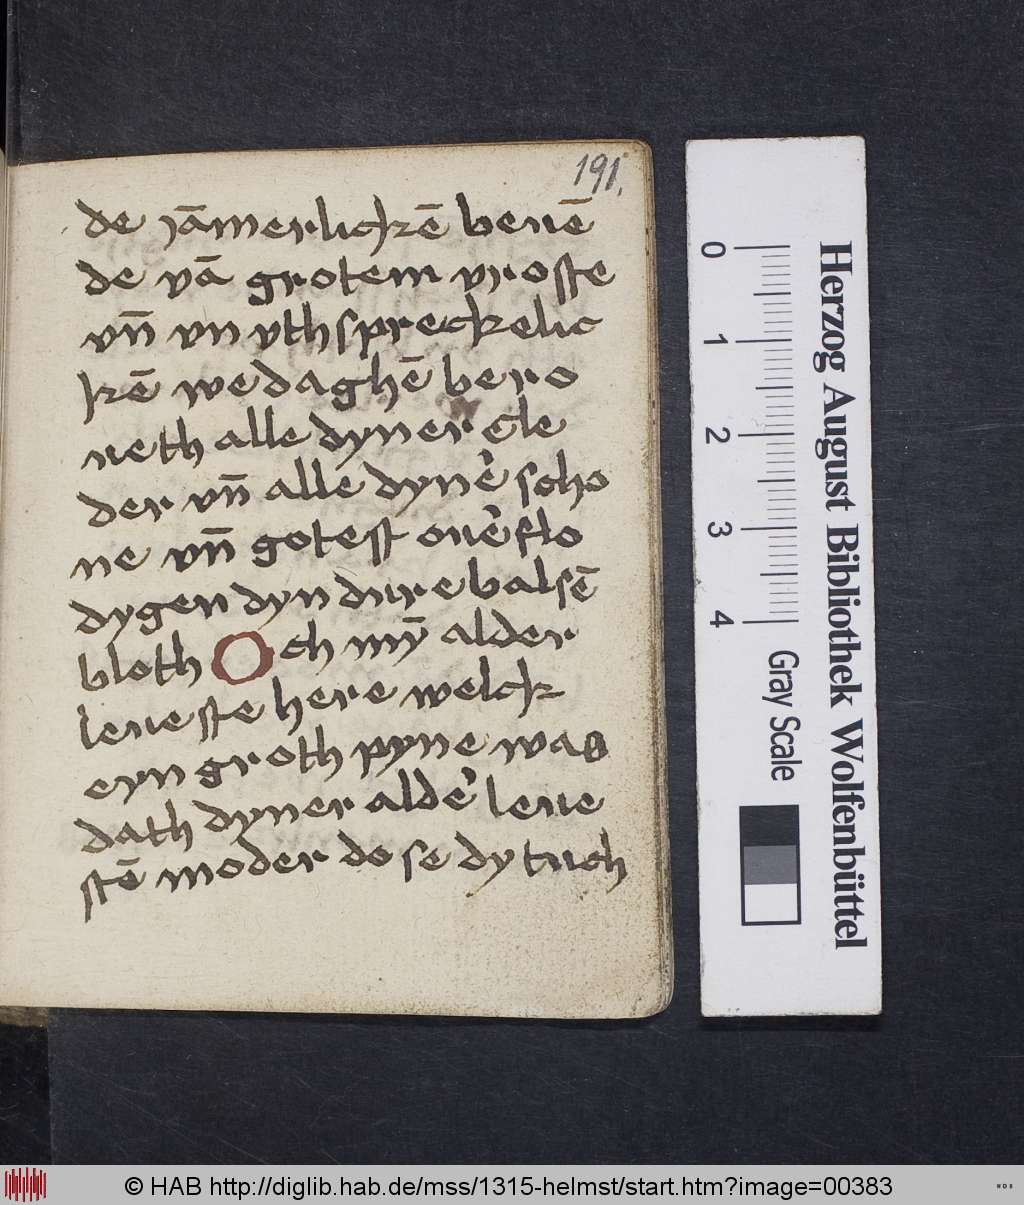 191.
de jāmerlickē beuē
de vā grotem vroste
vn̄ vn vthspreckelic
kē wedaghē bero
ueth alle dyner cle
der vn̄ alle dyne᷑ scho
ne vn̄ gotest oue᷑flo
dygen dyn dure balsē
bloth Och mȳ alder
leueste here welck
eyn groth pyne was
dath dyner alde᷑ leue
stē moder do se dy tuch
Herzog August Bibliothek Wolfenbüttel
0 1 2 3 4 Gray Scale
© HAB http://diglib.hab.de/mss/1315-helmst/start.htm?image=00383